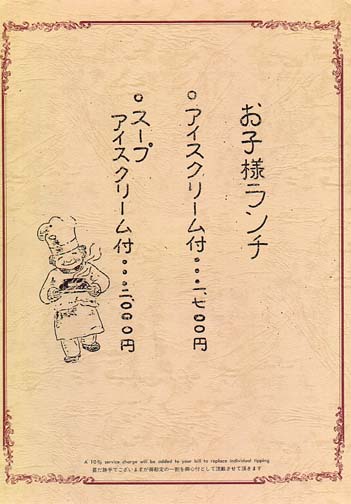 お子様ランチ
○ アイスクリーム付・・・一、七〇〇円
● スープ
アイスクリーム付・・・二、〇〇〇円
A 10% service charge will be added to your bill to replace individual tipping
甚だ勝手でございますが御勘定の一割を御心付として頂戴させて頂きます